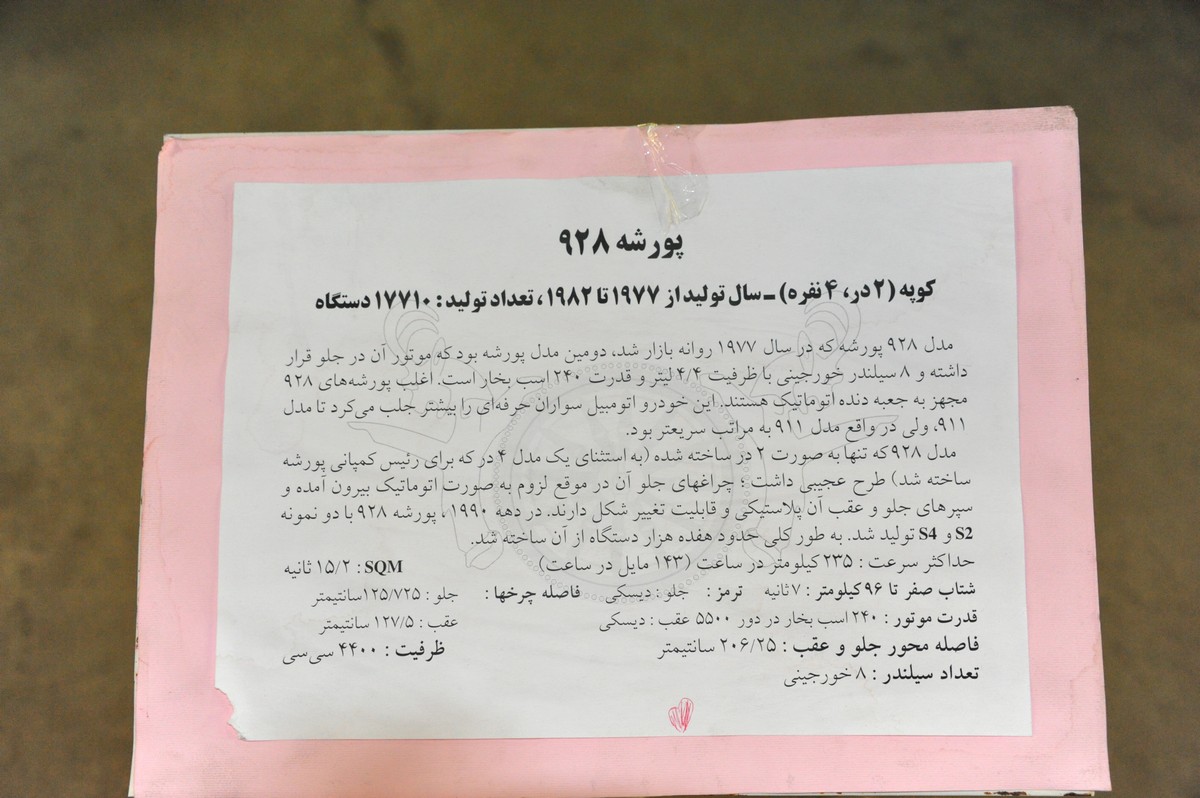 پورشه ۹۲۸
کوپه (۲ در، ۴ نفره) ـ سال تولید از ۱۹۷۷ تا ۱۹۸۲، تعداد تولید: ۱۷۷۱۰ دستگاه
مدل ۹۲۸ پورشه که در سال ۱۹۷۷ روانه بازار شد، دومین مدل پورشه بود که موتور آن در جلو قرار
داشته و ۸ سیلندر خورجینی با ظرفیت ۴/۴ لیتر و قدرت ۲۴۰ اسب بخار است. اغلب پورشه‌های ۹۲۸
مجهز به جعبه دنده اتوماتیک هستند. این خودرو اتومبیل سواران حرفه‌ای را بیشتر جلب می‌کرد تا مدل
۹۱۱، ولی در واقع مدل ۹۱۱ به مراتب سریعتر بود.
مدل ۹۲۸ که تنها به صورت ۲ در ساخته شده (به استثنای یک مدل ۴ در که برای رئیس کمپانی پورشه
ساخته شد) طرح عجیبی داشت؛ چراغهای جلو آن در موقع لزوم به صورت اتوماتیک بیرون آمده و
سپرهای جلو و عقب آن پلاستیکی و قابلیت تغییر شکل دارند. در دهه ۱۹۹۰، پورشه ۹۲۸ با دو نمونه
S2 و S4 تولید شد. به طور کلی حدود هفده هزار دستگاه از آن ساخته شد.
حداکثر سرعت : ۲۳۵ کیلومتر در ساعت (۱۴۳ مایل در ساعت) SQM : ۱۵/۲ ثانیه
شتاب صفر تا ۹۶ کیلومتر : ۷ ثانیه ترمز : جلو : دیسکی فاصله چرخها : جلو : ۱۲۵/۷۲۵ سانتیمتر
قدرت موتور : ۲۴۰ اسب بخار در دور ۵۵۰۰ عقب : دیسکی عقب : ۱۲۷/۵ سانتیمتر
فاصله محور جلو و عقب : ۲۰۶/۲۵ سانتیمتر ظرفیت : ۴۴۰۰ سی‌سی
تعداد سیلندر : ۸ خورجینی